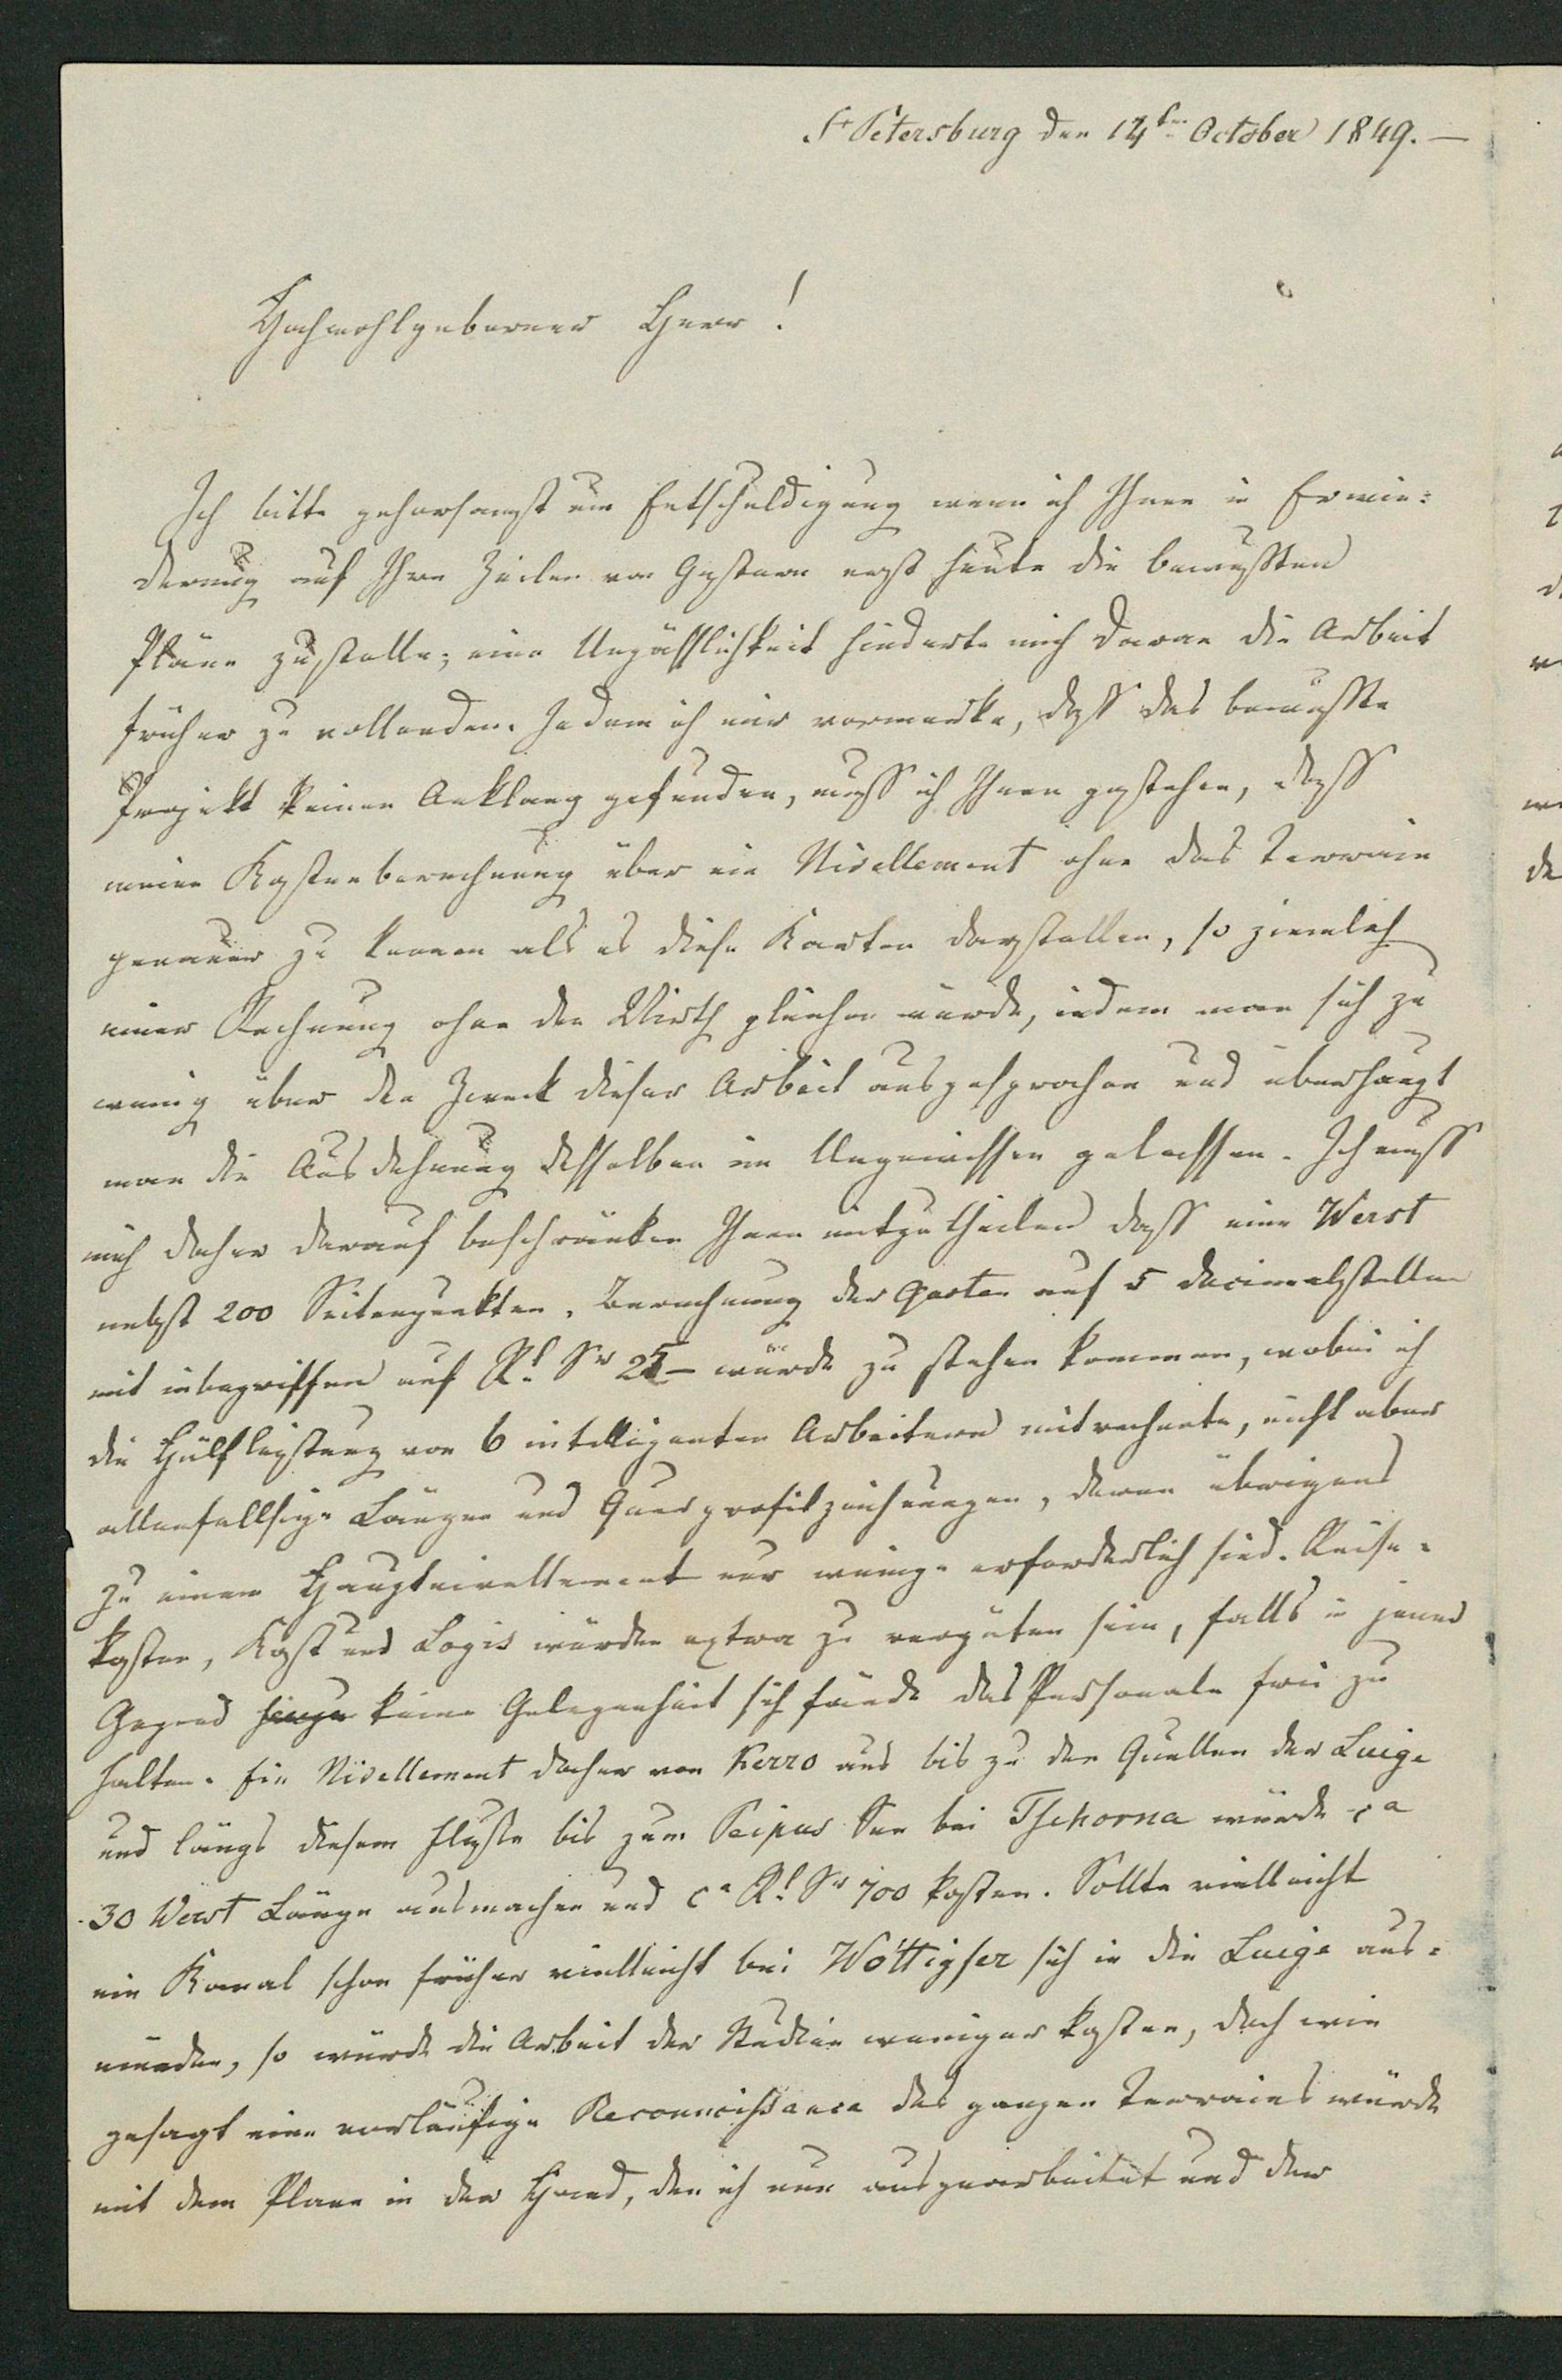 St Petersburg den 14ten October 1849. —
Hochwohlgeborner Herr!
Ich bitte gehorsamst um Entschuldigung wenn ich Ihnen in Erwie=
derung auf Ihre Zeilen von Gestern erst heute die bewussten
Pläne zustelle; eine Unpässlichkeit hinderte mich daran die Arbeit
früher zu vollenden. Indem ich mir vormerke, dass das bewusste
Projekt keinen Anklang gefunden, muss ich Ihnen gestehen, dass
meine Kostenberechnung über ein Nivellement ohne das Terrain
genauer zu kennen als es diese Karten darstellen, so ziemlich
einer Rechnung ohne den Wirth gleichen würde, indem man sich zu
wenig über den Zweck dieser Arbeit ausgesprochen und überhaupt
man die Ausdehnung desselben im Ungewissen gelassen. Ich muss
mich daher darauf beschränken Ihnen mitzutheilen dass eine Werst
nebst 200 Seitenpunkten, Berechnung der Quoten auf 5 Decimalstellen
mit inbegriffen auf Rl Sr 25 — würde zu stehen kommen, wobei ich
die Hülfleistung von 6 intelligenten Arbeitern mitrechnete, nicht aber
allenfallsige Längen und Querprofilzeichnungen, deren übrigens
zu einem Hauptnivellement nur wenige erforderlich sind. Reise=
kosten, Kost und Logis würden extra zu vergüten sein, falls in jener
Gegend keine Gelegenheit sich fände das Personale frei zu
halten. Ein Nivellement daher von Kerro aus bis zu den Quellen der Luige
und längs diesem Flusse bis zum Peipus See bei Tschorna würde ca
30 Werst Länge ausmachen und ca Rl Sr 700 kosten. Sollte vielleicht
ein Kanal schon früher vielleicht bei Wöttigfer sich in die Luige aus=
münden, so würde die Arbeit der Studien weniger kosten, doch wie
gesagt eine vorläufige Reconnoissance des ganzen Terrains würde
mit dem Plane in der Hand, den ich nun ausgearbeitet und der